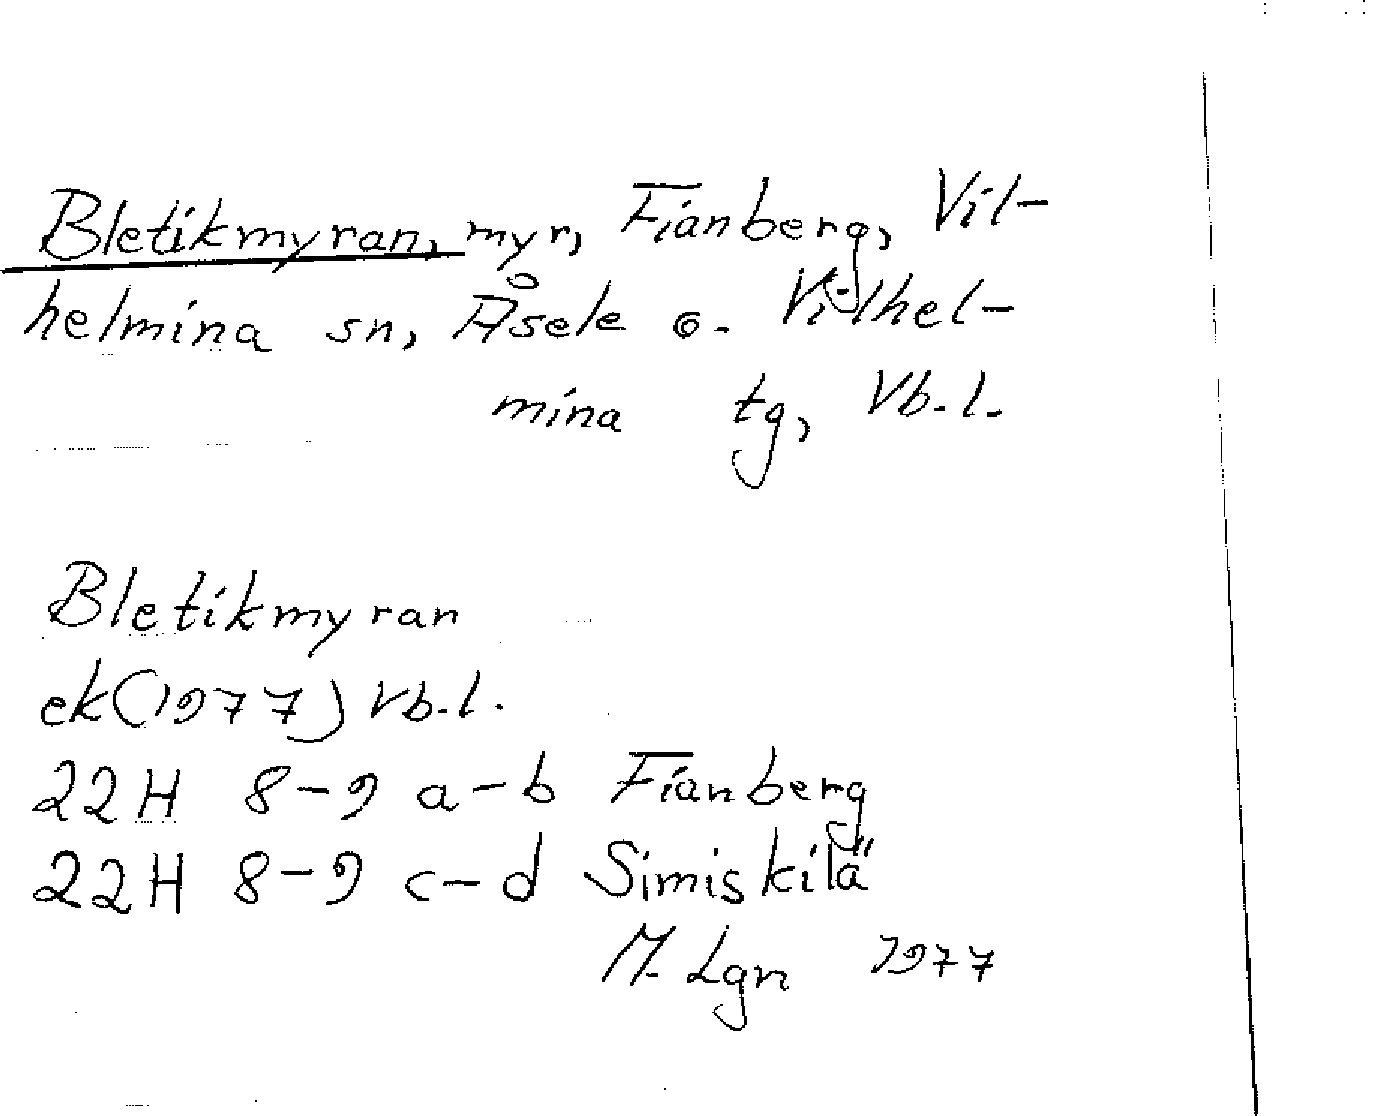 Bletikmyran, myr, Fianberg, Vil-
helmina sn, Åsele o. Vilhel-
mina tg, Vb.l.
Bletikmyran
ek (1977) Vb.l.
22H 8-9 a-b Fianberg
22H 8-9 c-d Simiskilä
M. Lgn 1977